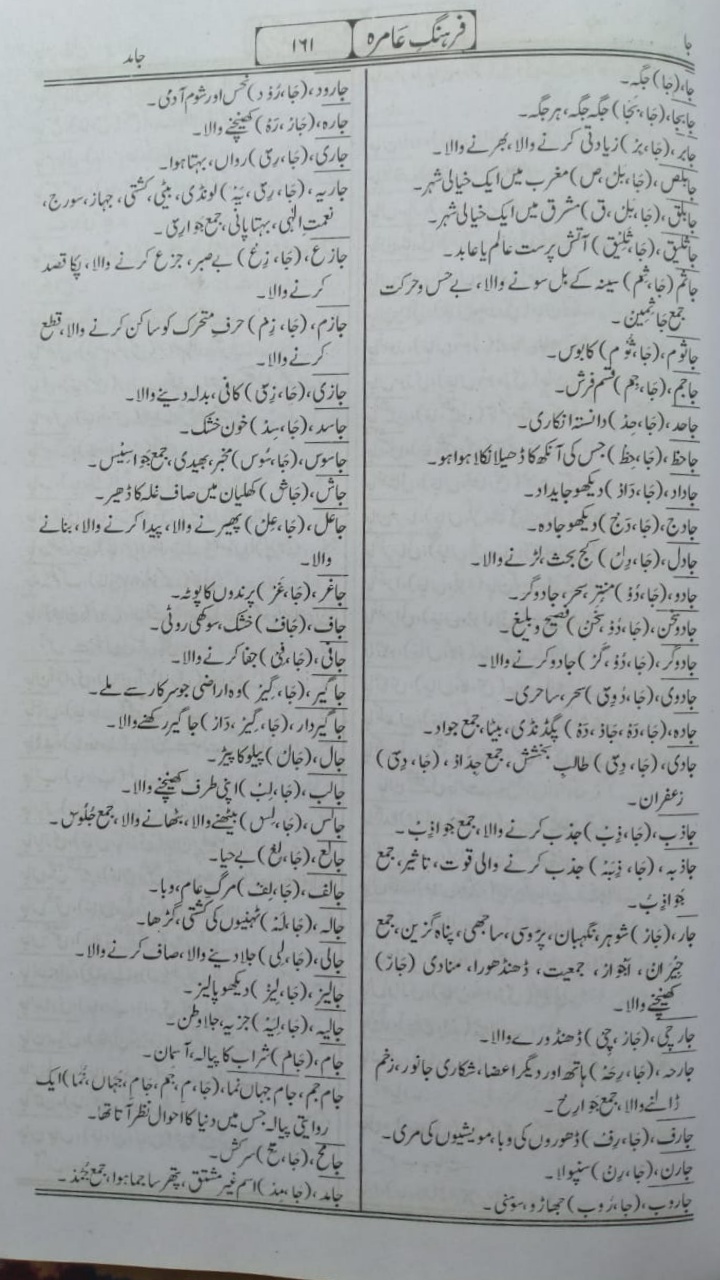 جا
فرہنگِ عامرہ
۱۶۱
جامد
جا، (جَا) جگہ۔
جابجا، (جَا، بَجَا) جگہ جگہ، ہر جگہ۔
جابر، (جَا، بِرْ) زیادتی کرنے والا، بھرنے والا۔
جابلص، (جَا، بَلْ، ص) مغرب میں ایک خیالی شہر۔
جابلق، (جَا، بَلْ، ق) مشرق میں ایک خیالی شہر۔
جاثلیق، (جَا، ثَلِیْق) آتش پرست عالم یا عابد۔
جاثم (جَا، ثِمْ) سینہ کے بل سونے والا، بے حس و حرکت
جمع جاثمین۔
جاثوم، (جَا، ثُوْم) کابوس۔
جاجم، (جَا، جِمْ) قسم فرش۔
جاحد، (جَا، حِدْ) دانستہ انکاری۔
جاحظ، (جَا، حِظْ) جس کی آنکھ کا ڈھیلا نکلا ہوا ہو۔
جاداد، (جَا، دَادْ) دیکھو جایداد۔
جادج، (جَا، دَجْ) دیکھو جادہ۔
جادل، (جَا، دِلْ) کج بحث، لڑنے والا۔
جادو، (جَا، دُوْ) منتر، سحر، جادوگر۔
جادوسخن، (جَا، دُوْ، سَخُنْ) فصیح و بلیغ۔
جادوگر، (جَا، دُوْ، گَرْ) جادو کرنے والا۔
جادوی، (جَا، دُوِیْ) سحر، ساحری۔
جادہ، (جَا، دَہْ، جَادْ، دَہْ) پگڈنڈی، بیٹا، جمع جواد۔
جادی، (جَا، دِیْ) طالب بخشش، جمع جداد، (جَا، دِیْ)
زعفران۔
جاذب، (جَا، ذِبْ) جذب کرنے والا، جمع جَوَاذِبْ۔
جاذبہ، (جَا، ذِبَہْ) جذب کرنے والی قوت، تاثیر، جمع
جَوَاذِبْ۔
جار، (جَارْ) شوہر، نگہبان، پڑوسی، ساجھی، پناہ گزین، جمع
جِیْرَان، اَجْوَار، جمعیت، ڈھنڈھورا، منادی (جَارّ)
کھینچنے والا۔
جارچی، (جَارْ، چِیْ) ڈھنڈورے والا۔
جارحہ، (جَا، رِحَہْ) ہاتھ اور دیگر اعضا، شکاری جانور، زخم
ڈالنے والا، جمع جَوَارِح۔
جارف، (جَا، رِفْ) ڈھوروں کی وبا، مویشیوں کی مری۔
جارن، (جَا، رِنْ) سنپولا۔
جاروب، (جا، رُوب) جھاڑو، سوہنی۔
جارود، (جَا، رُوْد) نحس اور شوم آدمی۔
جارہ، (جَارْ، رَہْ) کھینچنے والا۔
جاری، (جَا، رِیْ) رواں، بہتا ہوا۔
جاریہ، (جَا، رِیْ، یَہْ) لونڈی، بیٹی، کشتی، جہاز، سورج،
نعمتِ الٰہی، بہتا پانی، جمع جَوَارِی۔
جازع، (جَا، زِعْ) بے صبر، جزع کرنے والا، پکا قصد
کرنے والا۔
جازم، (جَا، زِمْ) حرفِ متحرک کو ساکن کرنے والا، قطع
کرنے والا۔
جازی، (جَا، زِیْ) کافی، بدلہ دینے والا۔
جاسد، (جَا، سِدْ) خون خشک۔
جاسوس، (جَا، سُوْس) مخبر، بھیدی، جمع جَوَاسِیْس۔
جاش، (جَاش) کھلیان میں صاف غلہ کا ڈھیر۔
جاعل، (جَا، عِلْ) پھیرنے والا، پیدا کرنے والا، بنانے
والا۔
جاغر، (جَا، غَرْ) پرندوں کا پوٹہ۔
جاف، (جَافْ) خشک، سوکھی روٹی۔
جافی، (جَا، فِیْ) جفا کرنے والا۔
جاگیر، (جَا، گِیْر) وہ اراضی جو سرکار سے ملے۔
جاگیردار، (جَا، گِیْر، دَارْ) جاگیر رکھنے والا۔
جال، (جَالْ) پیلو کا پیڑ۔
جالب، (جَا، لِبْ) اپنی طرف کھینچنے والا۔
جالس، (جَا، لِسْ) بیٹھنے والا، بٹھانے والا، جمع جُلُوس۔
جالع، (جَا، لِعْ) بے حیا۔
جالف، (جَا، لِفْ) مرگِ عام، وبا۔
جالہ، (جَا، لَہْ) ٹہنیوں کی کشتی، گڑھا۔
جالی، (جَا، لِی) جلا دینے والا، صاف کرنے والا۔
جالیز، (جَا، لِیْزْ) دیکھو پالیز۔
جالیہ، (جَا، لِیَہْ) جزیہ، جلاوطن۔
جام، (جَامْ) شراب کا پیالہ، آسمان۔
جام جم، جام جہاں نما، (جَا، م، جَم، جَامِ، جَہَاں، نُمَا) ایک
روایتی پیالہ جس میں دنیا کا احوال نظر آتا تھا۔
جامح، (جَا، مِحْ) سرکش۔
جامد، (جَا، مِدْ) اسم غیر مشتق، پتھر سا جما ہوا، جمع جُمُد۔